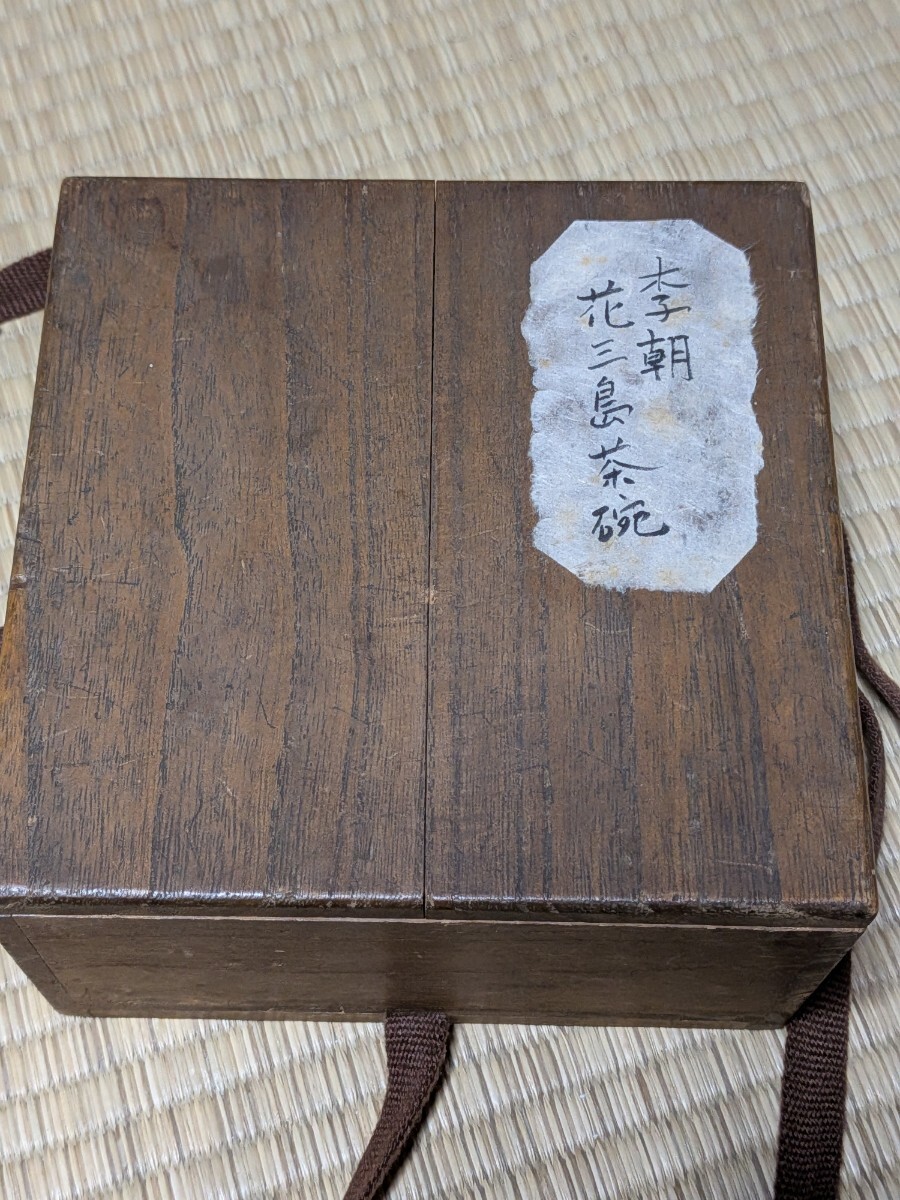 李朝
花三島茶碗